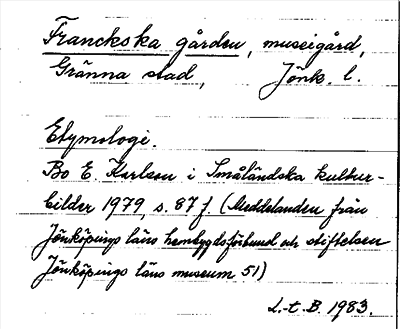 Franckska gården, museigård,
Gränna stad, Jönk. l.
Etymologi.
Bo E. Karlson i Småländska kultur-
bilder 1979, s. 87 f. (Meddelanden från
Jönköpings läns hembygdsförbund och stiftelsen
Jönköpings läns museum 51)
L-t. B. 1983.